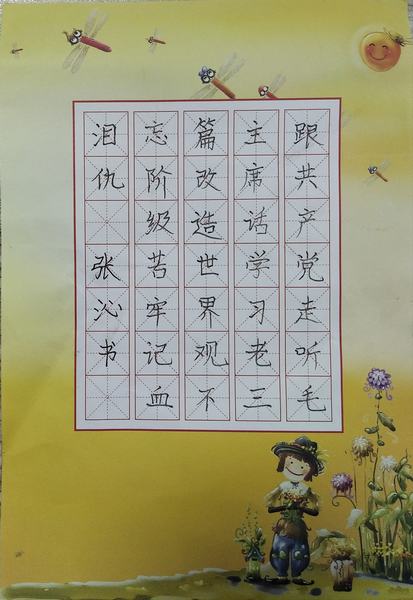 跟共产党走听毛
主席话学习老三
篇改造世界观不
忘阶级苦牢记血
泪仇 张沁书